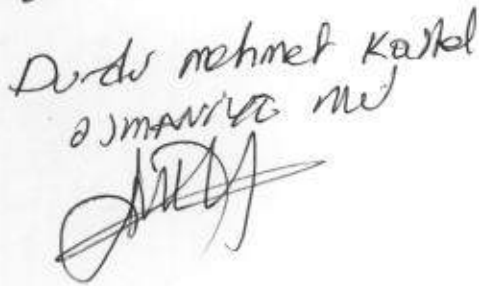 Durdu mehmet Kastal
OSMANİYE MV